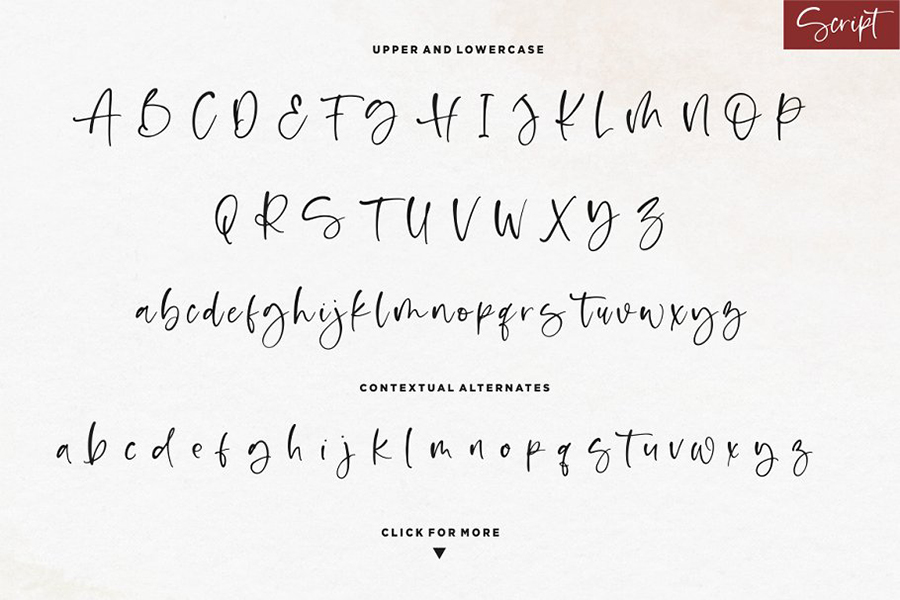 Script
UPPER AND LOWERCASE
A B C D E F G H I J K L M N O P
Q R S T U V W X Y Z
abcdefghijklmnopqrstuvwxyz
CONTEXTUAL ALTERNATES
a b c d e f g h i j k l m n o p q s t u v w x y z
CLICK FOR MORE